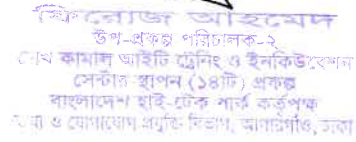 ফিরোজ আহমেদ
উপ-প্রকল্প পরিচালক-২
শেখ কামাল আইটি ট্রেনিং ও ইনকিউবেশন
সেন্টার স্থাপন (১৪টি) প্রকল্প
বাংলাদেশ হাই-টেক পার্ক কর্তৃপক্ষ
ও যোগাযোগ প্রযুক্তি বিভাগ, আগারগাঁও, ঢাকা